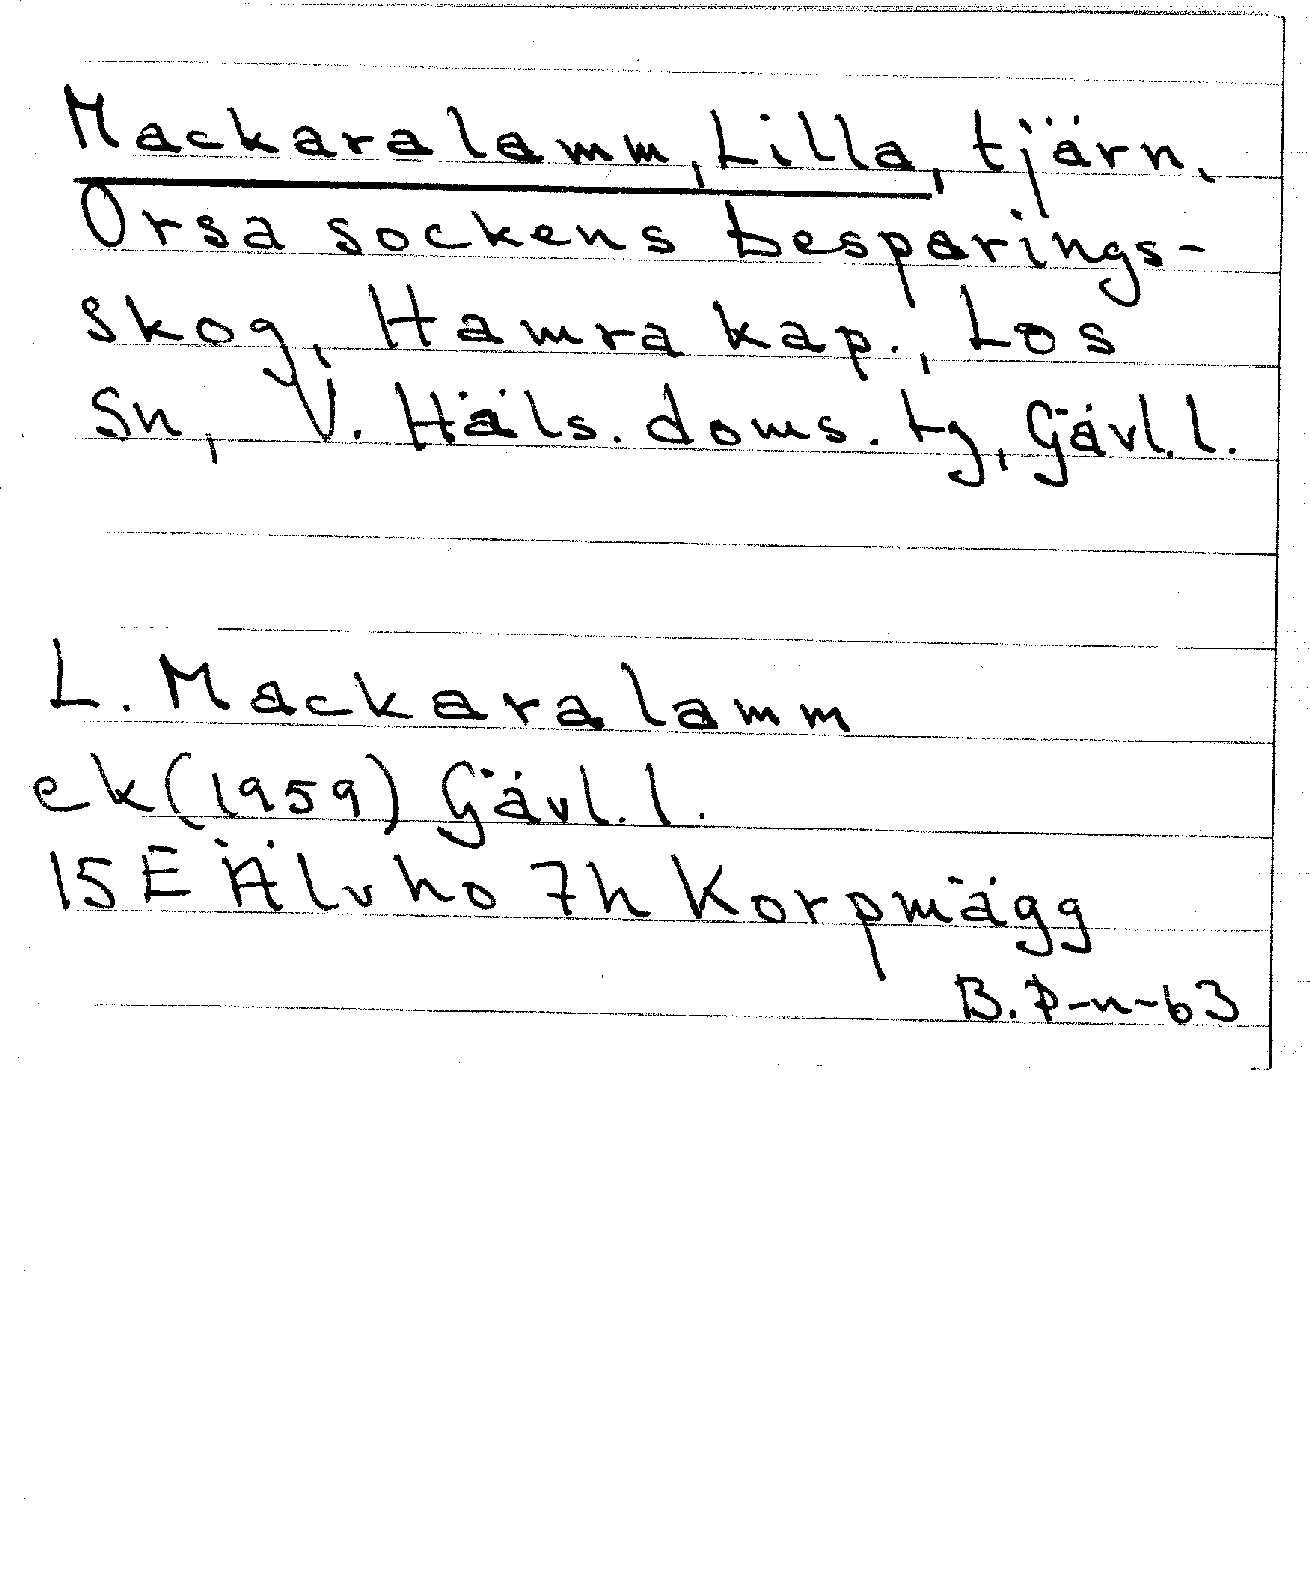 Mackaralamm, Lilla, tjärn,
Orsa sockens besparings-
skog, Hamra kap., Los
sn, V. Häls. doms. tg, Gävl. l.
L. Mackaralamm
ek (1959) Gävl. l.
15E Älvho 7h Korpmägg
B. P-n-63